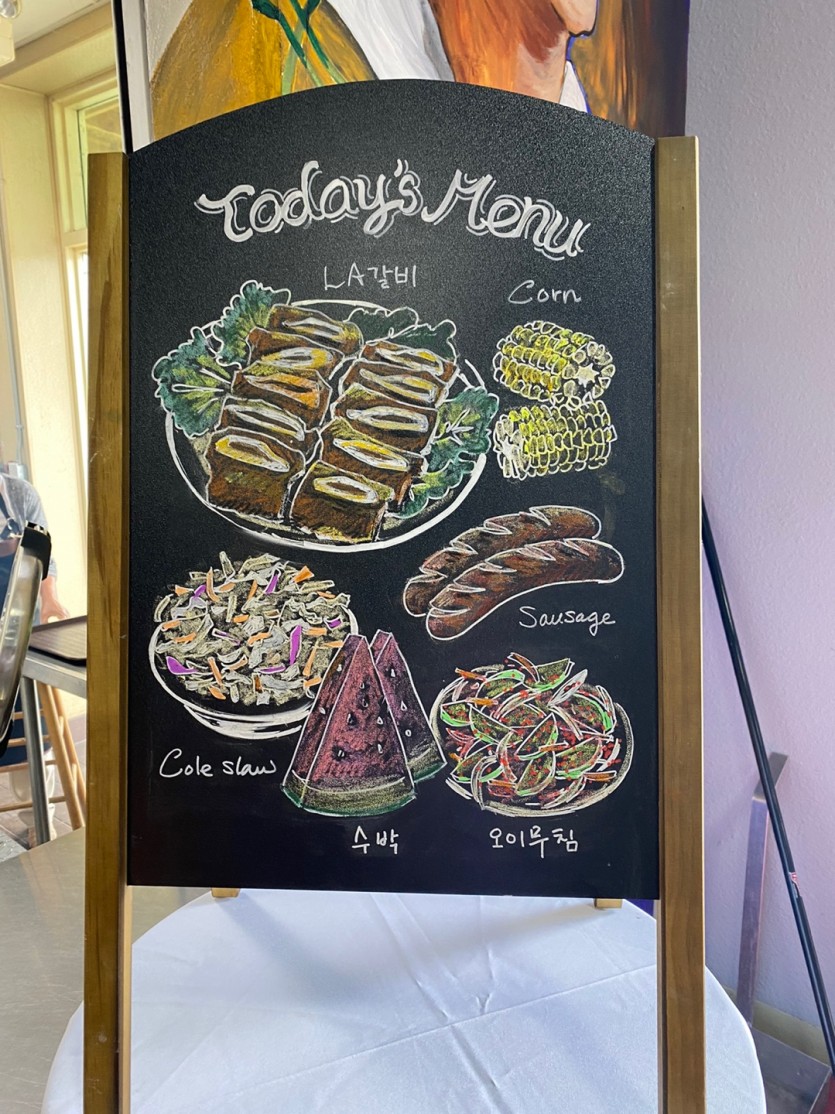 Today's Menu
LA갈비
Corn
Sausage
Cole slaw
수박
오이무침